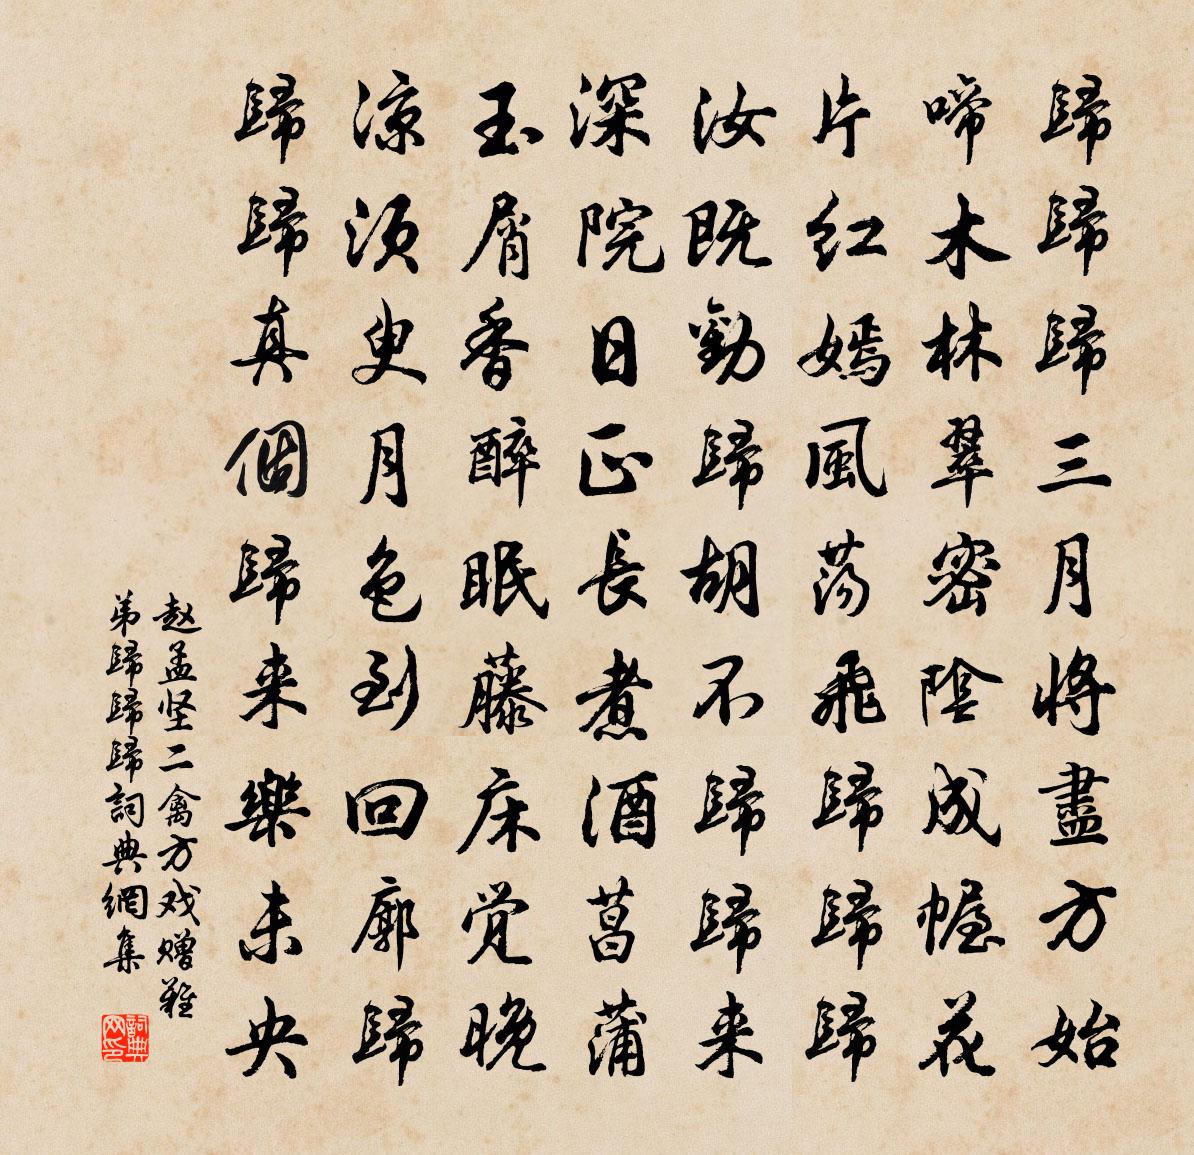 歸歸歸三月將盡方始
啼木林翠密陰成幄花
片紅嫣風蕩飛歸歸歸
汝既勸歸胡不歸歸来
深院日正長煮酒菖蒲
玉屑香醉眠藤床觉晚
凉须臾月色到回廓歸
歸歸真個歸来樂未央
赵孟坚二禽方戏赠难
弟歸歸歸詞典網集
詞典
网印